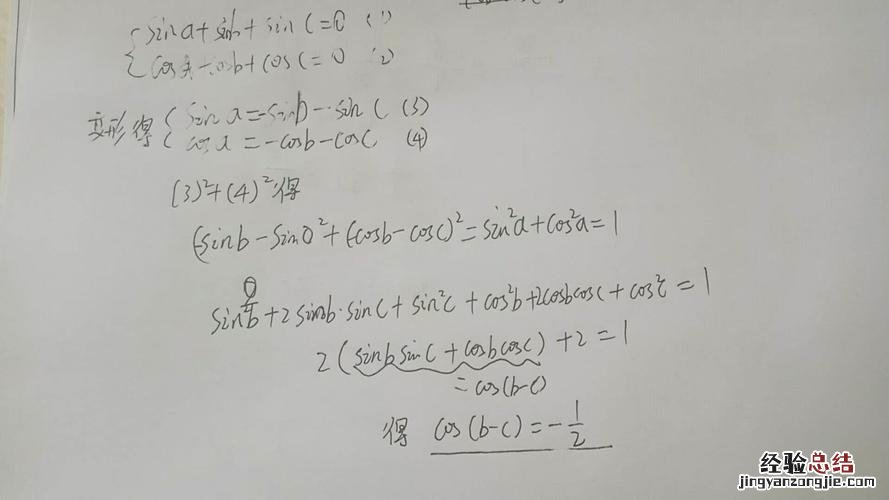 sin a + sin b + sin c = 0 (1)
cos a + cos b + cos c = 0 (2)
变形得 { sin a = -sin b - sin c (3)
cos a = -cos b - cos c (4)
(3)²+(4)²得
(-sin b - sin c)² + (-cos b - cos c)² = sin²a + cos²a = 1
sin²b + 2 sin b · sin c + sin²c + cos²b + 2cos b cos c + cos²c = 1
2 (sin b sin c + cos b cos c) + 2 = 1
= cos(b-c)
得 cos (b-c) = -1/2
经验总结
jingyanzongjie.com